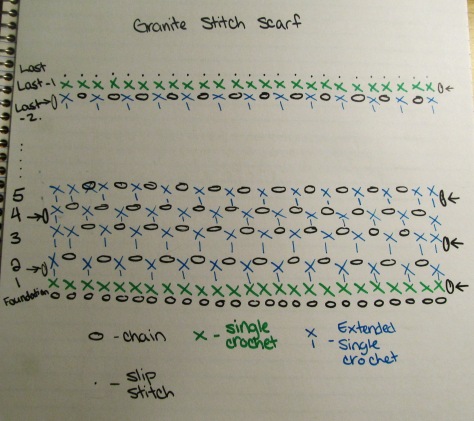 Granite Stitch Scarf
Last
Last-1
Last
-2.
5
4
3
2
1
Foundation
- chain
- single
crochet
- Extended
Single
crochet
- slip
stitch